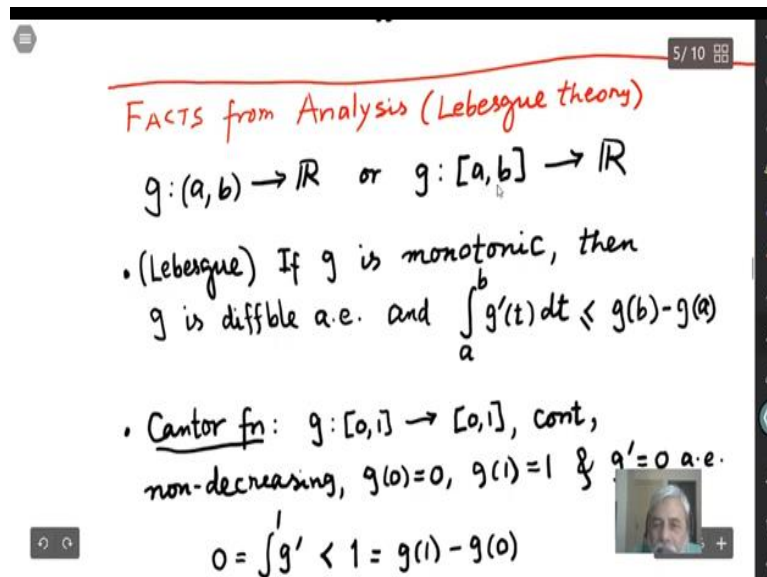 5/10
FACTS from Analysis (Lebesgue theory)
g : (a, b) → ℝ or g : [a, b] → ℝ
• (Lebesgue) If g is monotonic, then
g is diffble a.e. and ∫_a^b g'(t) dt ≤ g(b) - g(a)
• Cantor fn : g : [0,1] → [0,1], cont,
non-decreasing, g(0)=0, g(1)=1 & g'=0 a.e.
0 = ∫^1 g' < 1 = g(1) - g(0)